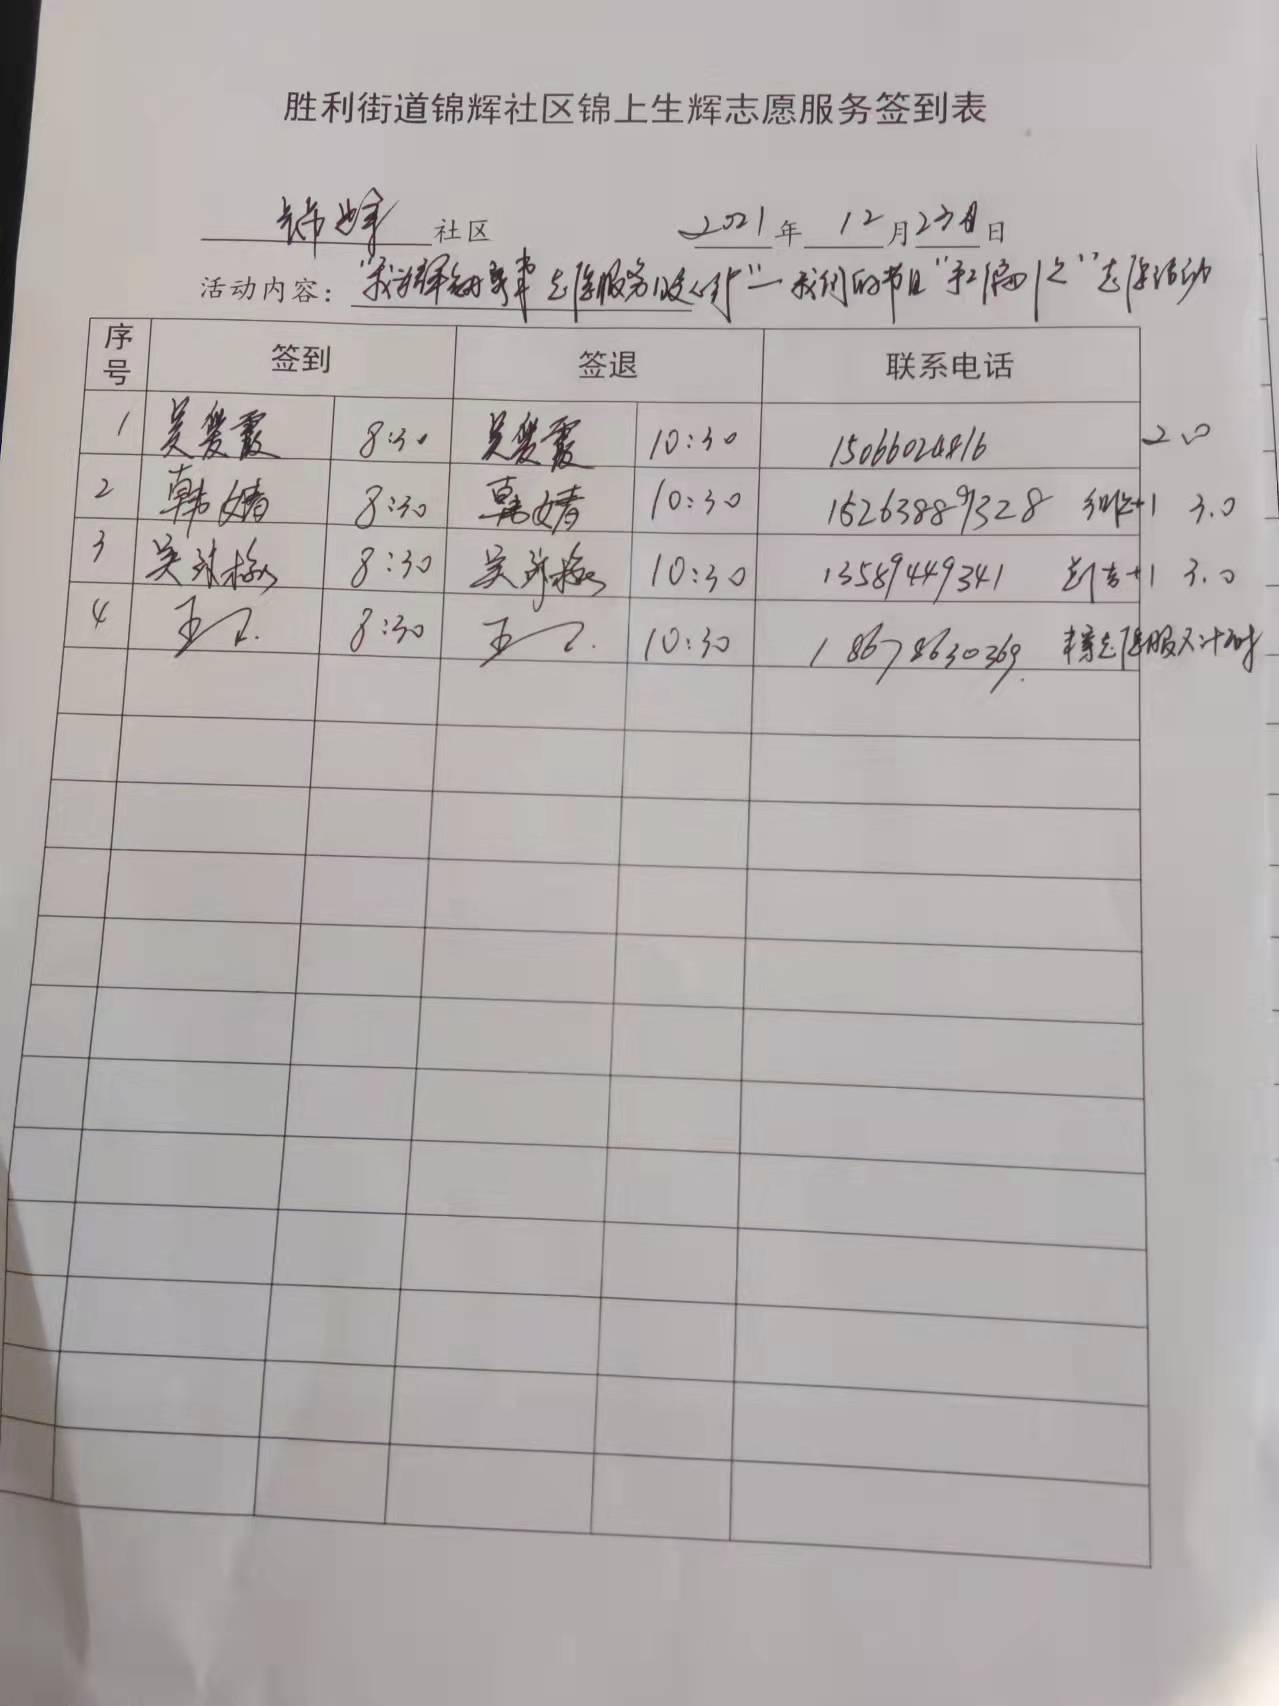 胜利街道锦辉社区锦上生辉志愿服务签到表
锦辉 社区 2021 年 12 月 23日 日
活动内容："我为群众办实事 志愿服务 "一我们的节日 " " 志愿活动
序号 签到 签退 联系电话
1 吴爱霞 8:30 吴爱霞 10:30 15066024816 2.0
2 韩婧 8:30 韩婧 10:30 15263889328 +1 3.0
3 吴 梅 8:30 吴 梅 10:30 13589449341 +1 3.0
4 王 8:30 王 10:30 18678630369. 志愿服 不计时